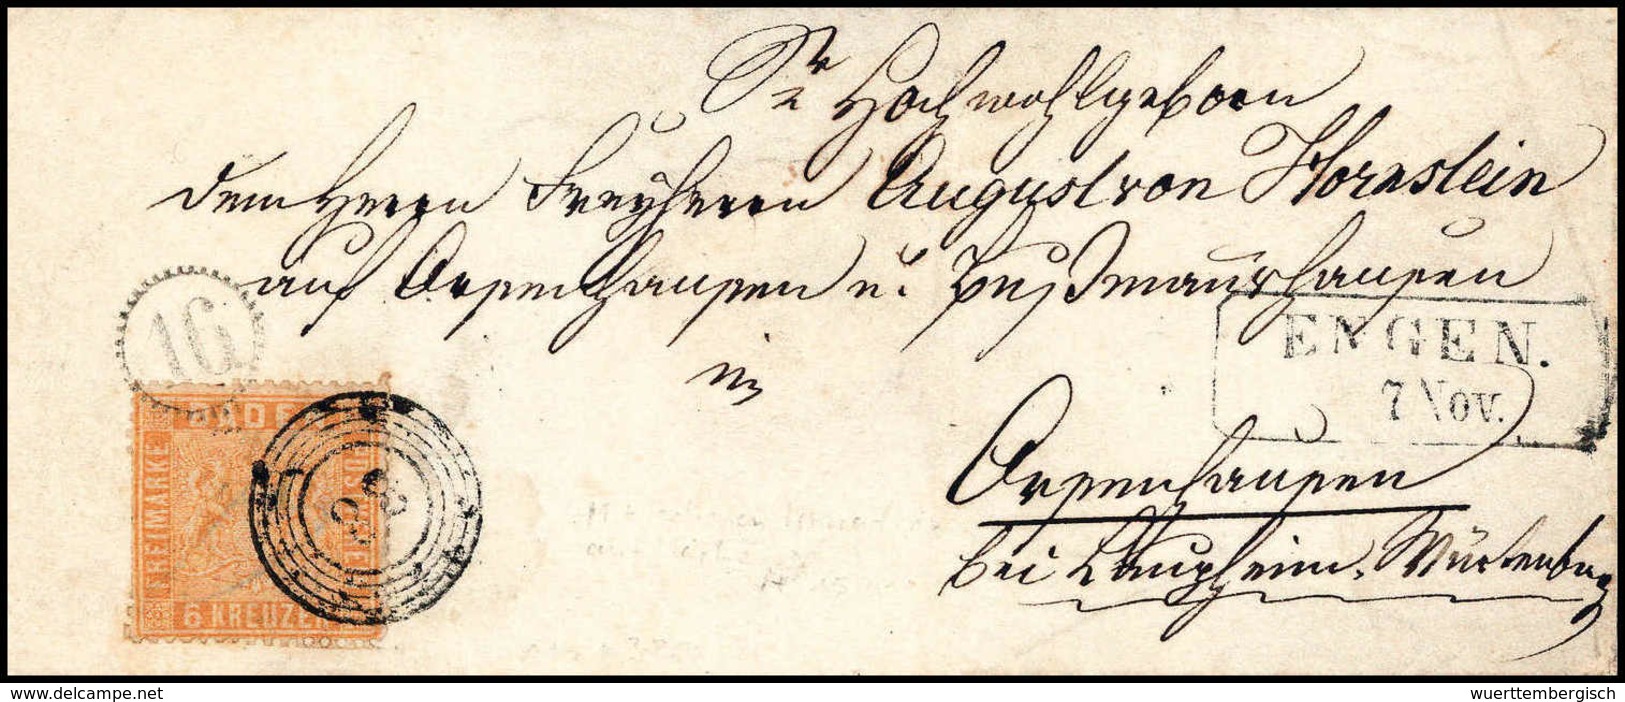 Sr Hochwohlgeborn
dem Herrn Freyherrn August von Hornstein
auf Orsenhausen u. Bußmannshausen
in
Orsenhausen
bei Laupheim, Würtenberg
16
ENGEN.
7 Nov.
BADEN
FREIMARKE
6 KREUZER
38
© delcampe.net
wuerttembergisch